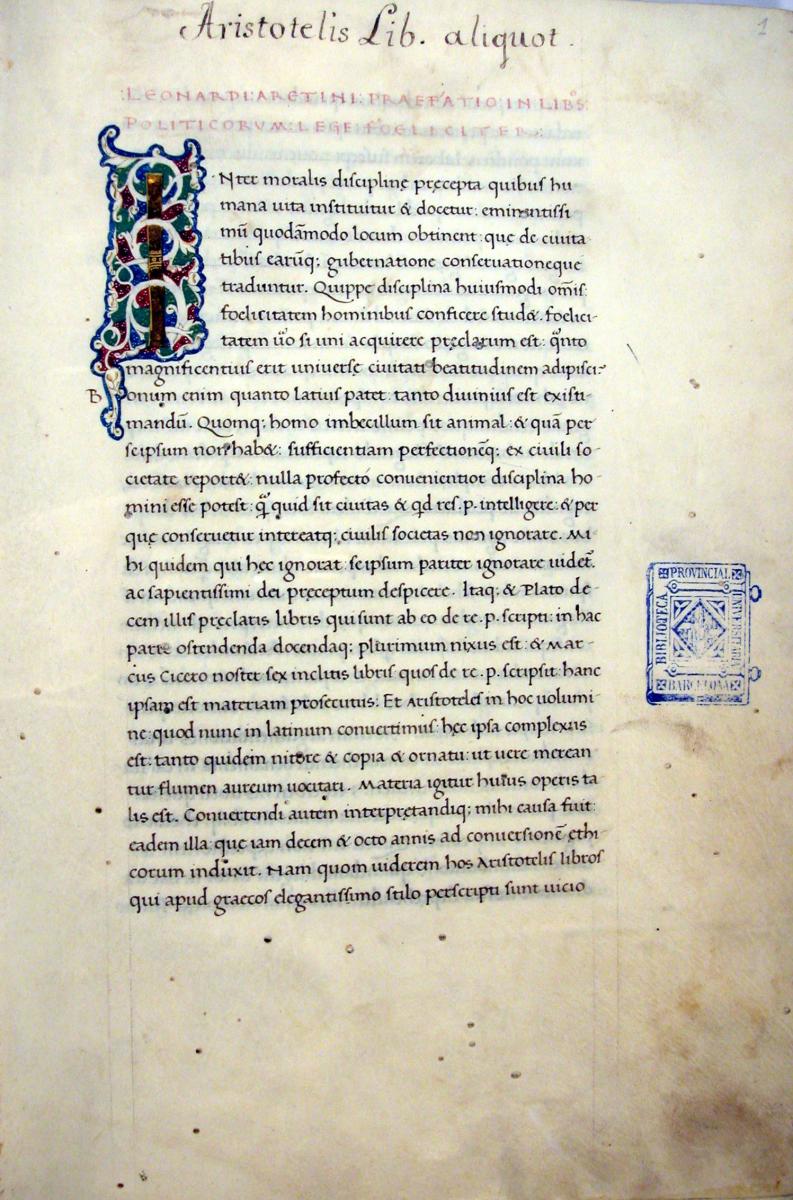 Aristotelis Lib. aliquot.
1
:LEONARDI:ARETINI:PRAEFATIO:IN LIBꝰS:
POLITICORVM:LEGE:FOELICITER:
INter moralis disciplinę pręcepta quibus hu
mana uita instituitur & docetur: eminentissi
mū quodāmodo locum obtinent: quę de ciuita
tibus earūq; gubernatione conseruationeque
traduntur. Quippe disciplina huiusmodi om̄is:
foelicitatem hominibus conficere stud&. foelici-
tatem ūo si uni acquirere pręclarum est: q̄nto
magnificentius erit uniuersę ciuitati beatitudinem adipisci?
B onum enim quanto latius patet: tanto diuinius est existi-
mandū. Quomq; homo imbecillum sit animal: & quā per
se ipsum non hab&: sufficientiam perfectionēq; ex ciuili so-
cietate report&: nulla profecto conuenientior disciplina ho-
mini esse potest: q̄ quid sit ciuitas & qd res .p. intelligere: & per
quę conseruetur intereatq; ciuilis societas non ignorare. Mi
hi quidem qui hęc ignorat: se ipsum pariter ignorare uidet̄.
ac sapientissimi dei pręceptum despicere. Itaq; & Plato de-
cem illis pręclaris libris qui sunt ab eo de re .p. scripti: in hac
parte ostendenda docendaq; plurimum nixus est: & Mar-
cus Cicero noster sex inclitis libris quos de re .p. scripsit hanc
ipsam est materiam prosecutus. Et Aristoteles in hoc uolumi
ne: quod nunc in latinum conuertimus: hęc ipsa complexus
est: tanto quidem nitore & copia & ornatu: ut uere merean
tur flumen aureum uocitari. Materia igitur huius operis ta
lis est. Conuertendi autem interpretandiq; mihi causa fuit:
eadem illa: quę iam decem & octo annis ad conuersionē ethi-
corum induxit. Nam quom uiderem hos Aristotelis libros
qui apud graecos elegantissimo stilo perscripti sunt uicio
BIBLIOTECA
PROVINCIAL
UNIVERSITARIA
BARCELONA